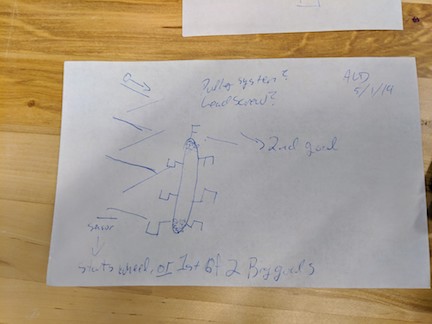 Pulley system?
Lead screw?
5/1/19
2nd goal
starts wheel, or 1st of 2 Big goals